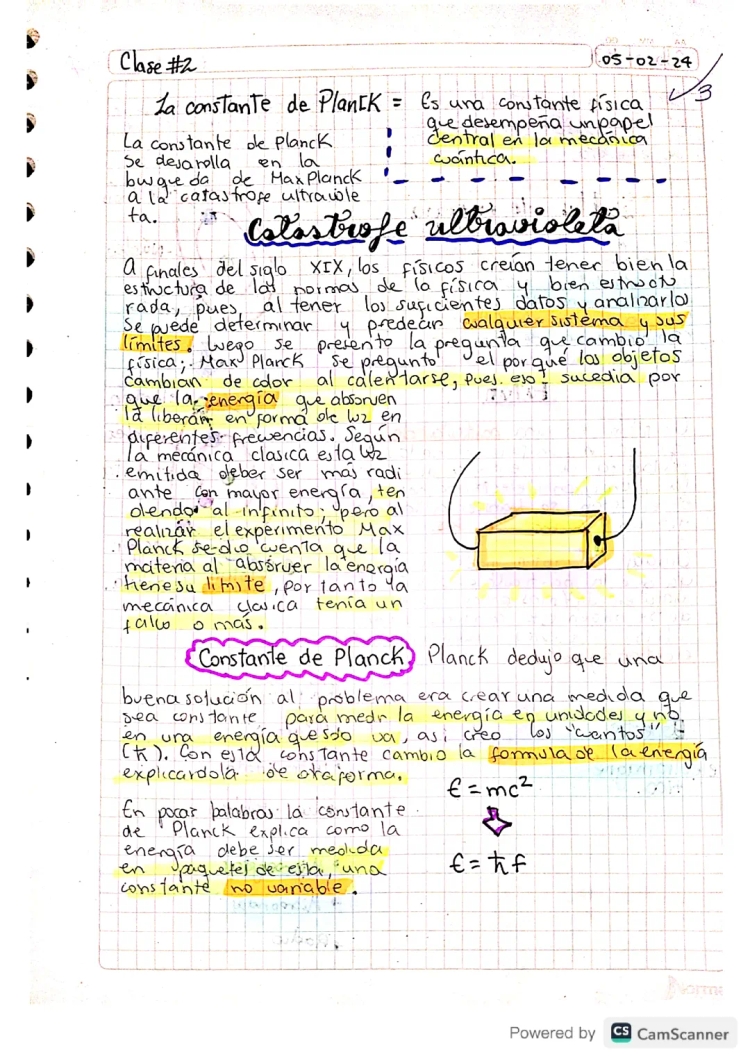 Clase #2
05-02-24
3
La constante de Planck = Es una constante física
que desempeña un papel
central en la mecánica
cuántica.
La constante de Planck
se desarolla en la
busqueda de Max Planck
a la catastrofe ultraviole
ta.
Catastrofe ultravioleta
A finales del siglo XIX, los físicos creían tener bien la
estructura de las normas de la física y bien estructu
rada, pues al tener los suficientes datos y analizarlos
se puede determinar y predecir cualquier sistema y sus
límites. Luego se presento la pregunta que cambio la
física; Max Planck se pregunto el por qué los objetos
cambian de color al calentarse, pues eso sucedia por
que la energía que absorven
la liberan en forma de luz en
diferentes frecuencias. Según
la mecánica clasica esta luz
emitida deber ser más radi
ante con mayor energía, ten
diendo al infinito; pero al
realizar el experimento Max
Planck se dio cuenta que la
materia al absorver la energía
tiene su limite, por tanto la
mecánica clasica tenía un
fallo o más.
Constante de Planck Planck dedujo que una
buena solución al problema era crear una medida que
sea constante para medir la energía en unidades y no
en una energía que solo va, asi creo los "cuantos"
(ℏ). Con esta constante cambio la formula de la energía
explicandola de otra forma.
E = mc²
En pocas palabras la constante
de Planck explica como la
energía debe ser medida
en paquetes de esta, una
constante no variable.
E = ℏf
Norma
Powered by CS CamScanner